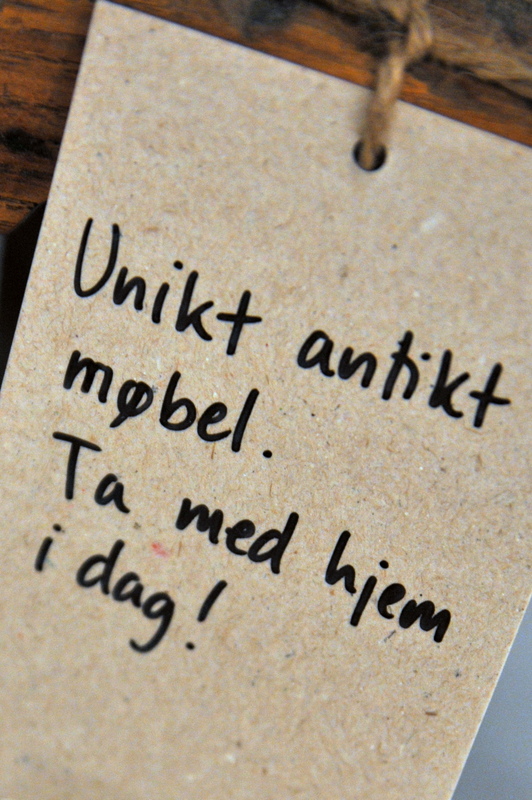 Unikt antikt
møbel.
Ta med hjem
i dag!